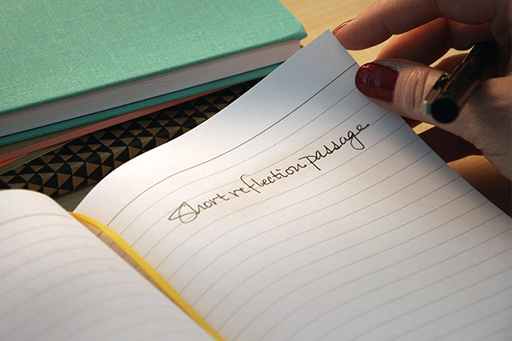 Short reflection passage